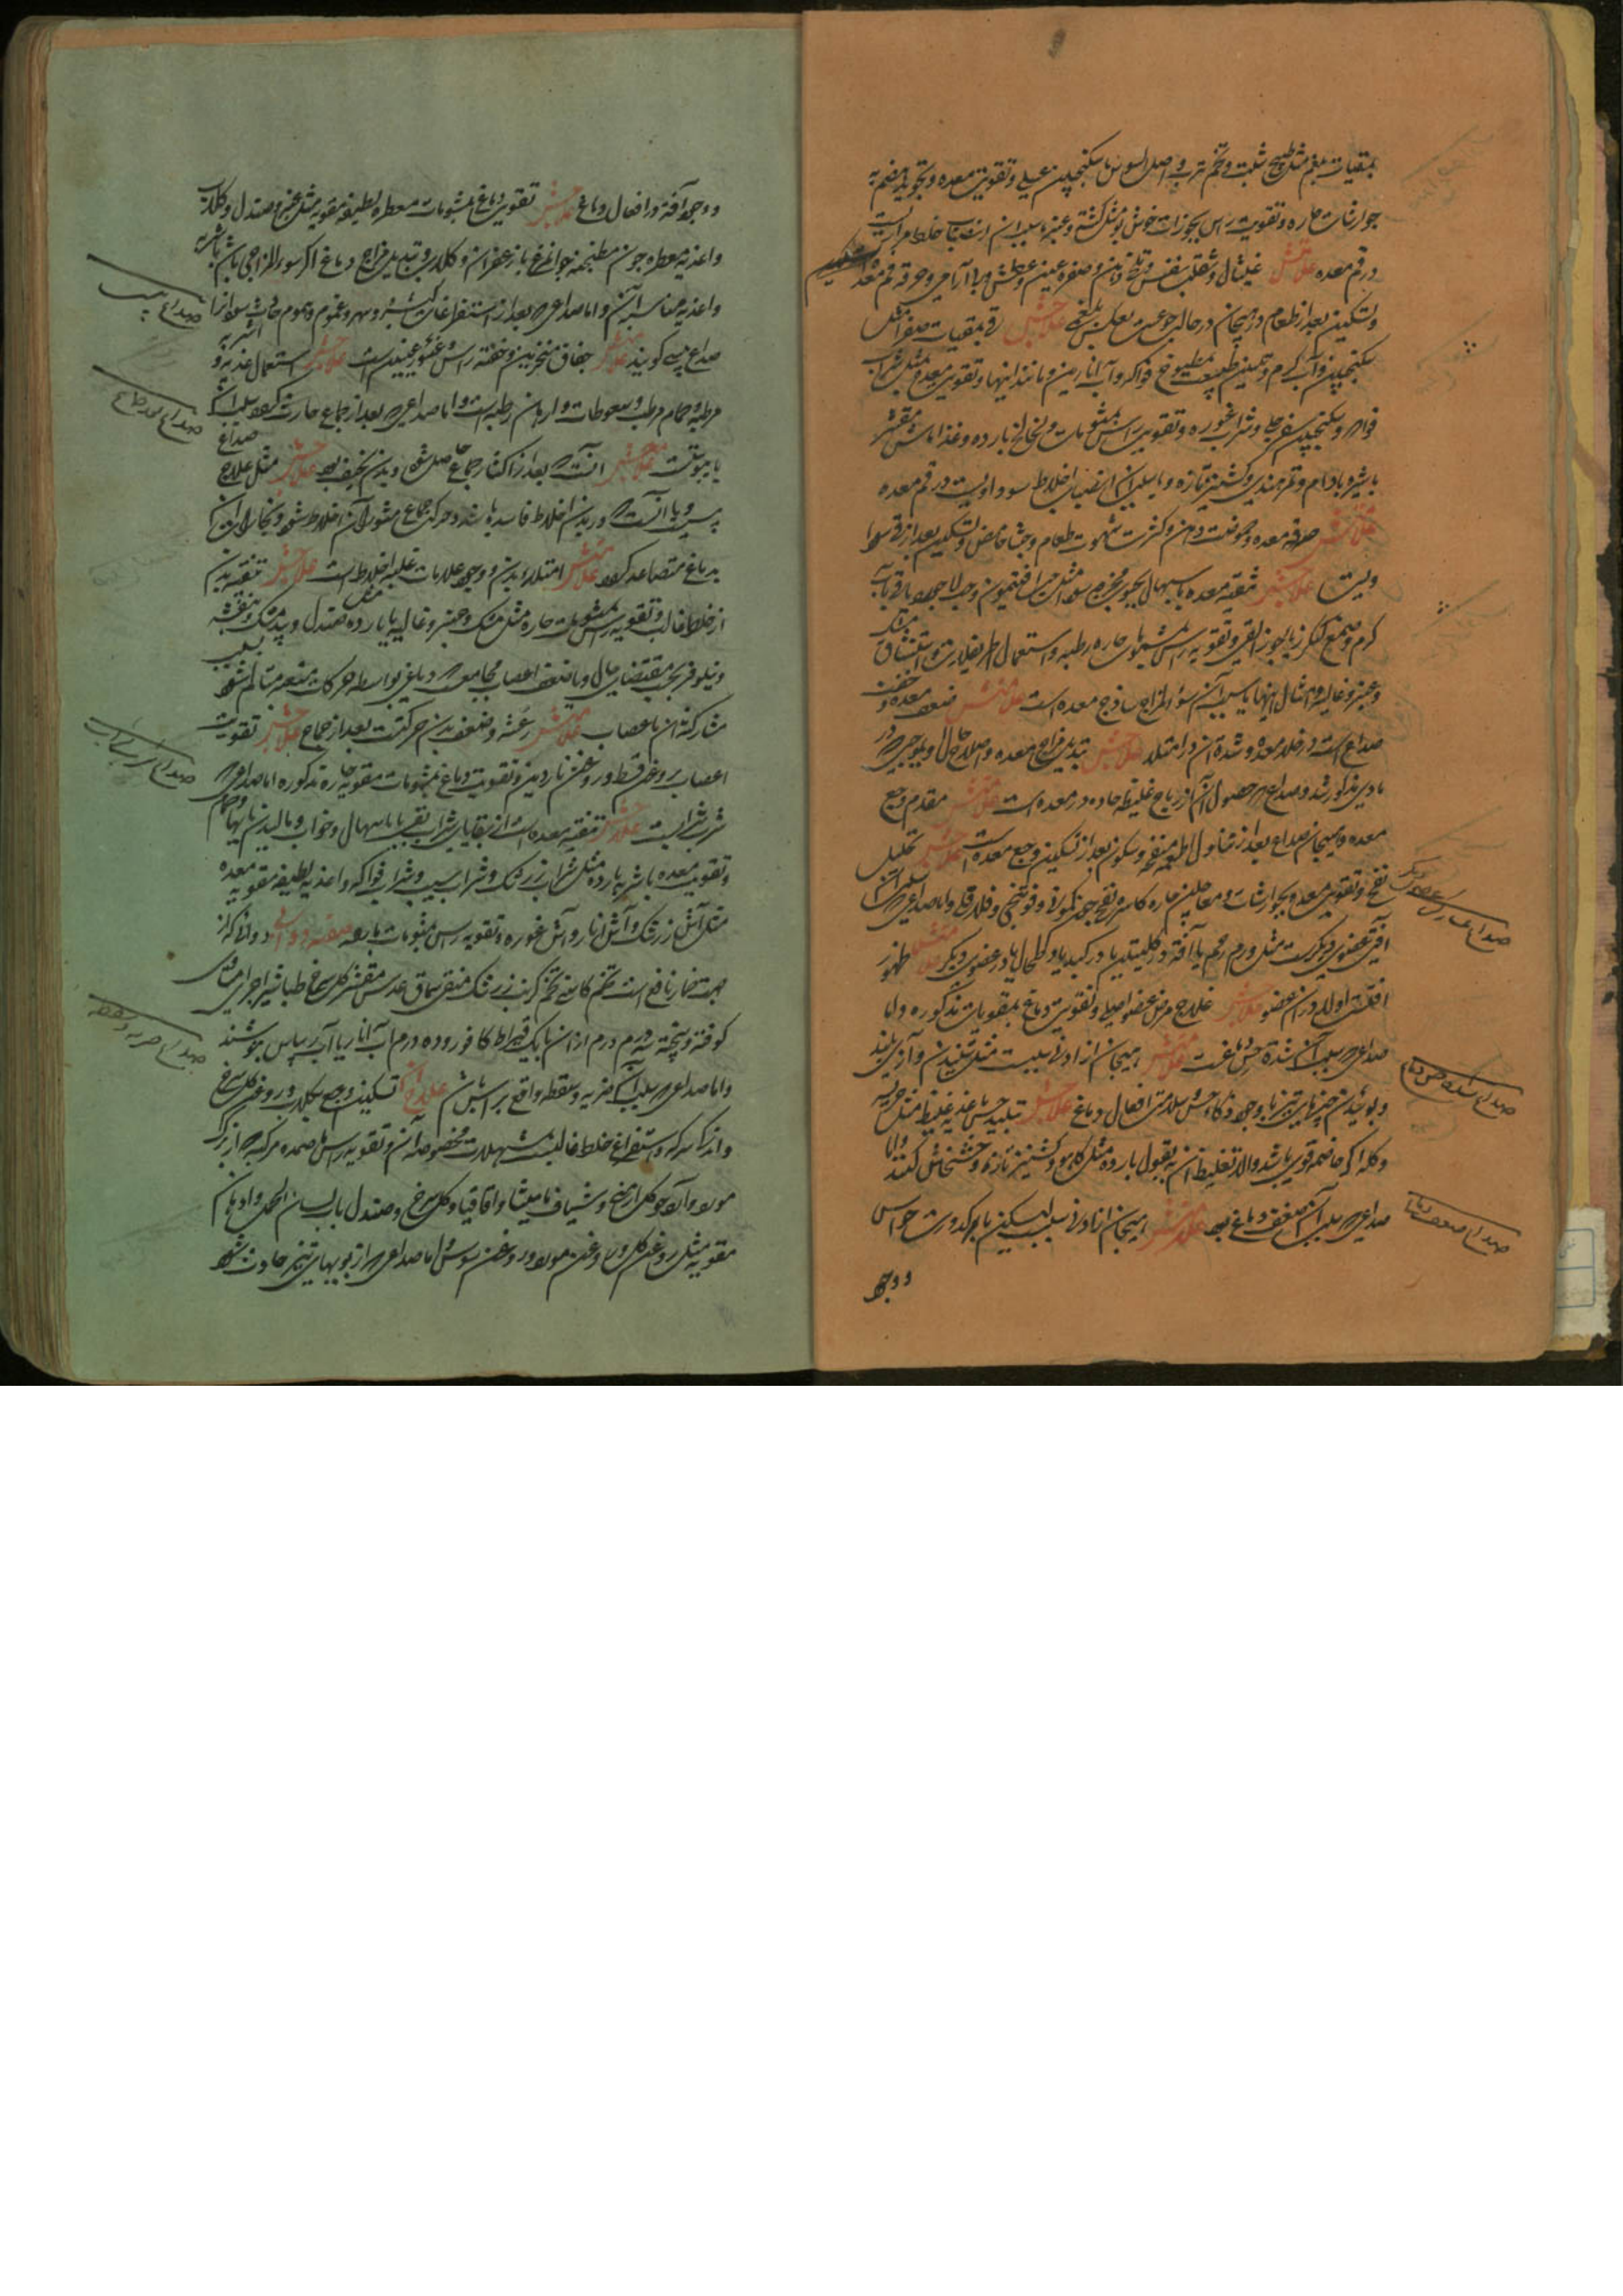 بمقیات بلغم مثل طبیخ شبت و تخم ترب و اصل السوس با سکنجبین عسلی و تقویت معده و تجوید هضم به
جوارشات حاره و تقویت راس بخورات خوش بو مثل کشته و عنبر یا سبب آن انصباب خلط مراریست
در فم معده علامتش غثیان و تقلب نفس و تلخی دهن و صفرة عین و عطش و بی آرامی و حرقه فم معده
و تسکین بعد از طعام و هیجان در حالت جوع بعکس بلغمی علاجش قی بمقیات صفرا مثل
سکنجبین و آب گرم و تلیین طبیعت بمطبوخ فواکه و آب انارین و مانند اینها و تقویت معده مثل شراب
فواکه و سکنجبین سفرجلی و شراب غوره و تقویت راس بمشمومات و لخالخ بارده و غذا ماش مقشر
با شیره بادام و تمر هندی و کشنیز تازه و یا سبب آن انصباب اخلاط سوداویست در فم معده
علامتش حرقه معده و حموضت دهن و کثرت شهوت طعام و جشا حامض و تسکین بعد از قی سودا
ویست علاجش تنقیه معده باسهال بحبوب مخرجه سودا مثل حب افتیمون و حب لاجورد یا قی بآب
گرم و صمغ کنگرزد یا جوز القی و تقویه راس بمشمومهای حاره رطبه و استعمال اطریفلات و استنشاق مشک
و عنبر و غالیه و امثال اینها یا سبب آن سوء المزاج ساذج معده است علامتش ضعف معده و خفت
صداع است در خلا معده و شدة آن در امتلا علاجش تبدیل مزاج معده و اصلاح حال و بموجبی که در
مادی مذکور شد و صداعی که حصول آن از ریاح غلیظه حاده در معده است علامتش مقدم وجع
معده و هیجان صداع بعد از تناول اطعمه منفخه و سکون بعد از تسکین وجع معده است علاجش تحلیل
نفخ و تقویت معده بجوارشات و معاجین حاره کاسره نفخ چون کمونی و فوتنجی و فلافلی و اما صداعی که سبب آن
آفتی عضوی دیگرست مثل ورم رحم یا آفة در کلیتین یا در کبد یا در طحال یا در عضوی دیگر علامتش ظهور
آفتست اولا در آن عضو علاجش علاج مرض عضو اصلی و تقویت دماغ بمقویات مذکوره و اما
صداعی که سبب آن شدة حس دماغست علامتش هیجان از ادنی سببیست مثل شنیدن آواز بلند
و بوئیدن چیزهای تیز با وجود ذکاء حس و سلامتی افعال دماغ علاجش تبلید حس باغذیه غلیظه مثل هریسه
و کله اگر هاضمه قوی باشد و الا تغلیظ آن به بقول بارده مثل کاهو و کشنیز تازه و خشخاش کنند و اما
صداعی که سبب آن ضعف دماغ بود علامتش هیجان از ادنی سببیست لیکن با کدورت حواس
و وجود
صداع بمشارکت عضو دیگر
صداع شدة حس دماغ
صداع ضعف دماغ
و وجود آفة در افعال دماغ علاجش تقویت دماغ بمشمومات معطره لطیفه مقویه مثل عنبر و صندل و گلاب
و اغذیه معطره چون مطنجنه جوانمرغ با زعفران و گلاب و تبدیل مزاج دماغ اگر سوء المزاجی باشد باشربه
و اغذیه مناسب آن و اما صداعی که بعد از استفراغات کثیره و سهر و غموم و هموم حادث شود آنرا
صداع یبسی گویند علامتش جفاف منخرین و خفة راس و غؤر عینین است علاجش استعمال اغذیه و اشربه
مرطبه و حمام مرطب و سعوطات و ادهان رطبست و اما صداعی که بعد از جماع حادث گردد سبب آن
یا یبوستست علامتش آنست که بعد از اکثار جماع حاصل شود و بدن نحیف بود علاجش مثل علاج صداع
یبسی و یا آنست که در بدن اخلاط فاسده باشد و حرکت جماع مشور آن اخلاط شود و بخارات آن
بدماغ متصاعد گردد علامتش امتلاء بدن و وجود علامات غلبه اخلاط است علاجش تنقیه بدن
از خلط غالب و تقویه راس بمشمومات حاره مثل مشک و عنبر و غالیه یا بارده مثل صندل و بیدمشک و بنفشه
و نیلوفر بحسب مقتضای حال و یا ضعف اعصاب مجامعست که دماغ بواسطه حرکات متعبه متالم شود بسبب
مشارکة آن با عصاب علامتش رعشه و ضعف بدن و حرکتست بعد از جماع علاجش تقویت
اعصاب بروغن قسط و روغن ناردین و تقویت دماغ بمشمومات مقویه حاره مذکوره اما صداعی که
شرابیست علاجش تنقیه معده است از بقایای شراب بقی یا باسهال و خواب و مالیدن پایها و حمام
و تقویت معده باشربه بارده مثل شراب زرشک و شراب سیب و شراب فواکه و اغذیه لطیفه مقویه معده
مثل آش زرشک و آش انار و آش غوره و تقویه راس بمشمومات بارده صفة دوائی دوائی که از
جهت خمار نافع است تخم کاسنی تخم کرنب زرشک منقی سماق عدس مقشر گل سرخ طباشیر اجزا مساوی
کوفته و بیخته سه درم از آن با یک قیراط کافور و ده درم آب انار یا آب ریباس بنوشند
و اما صداعی که سبب آن ضربه و سقطه واقع بر راس باشد علاج آن تسکین وجع بگلاب و روغن گل سرخ
و اندک سرکه و استفراغ خلط غالب بمسهلات مخصوصه آن و تقویه راس بضمده مرکبه از برگ
مورد و آرد جو و گل ارمنی و شیاف مامیثا و اقاقیا و گل سرخ و صندل بآب لسان الحمل و ادهان
مقویه مثل روغن گل و روغن مورد و روغن سوسن و اما صداعی که از بویهای تیز حادث شود
صداع یبسی
صداع بعد جماع
صداع شرابی
صداع ضربه و سقطه